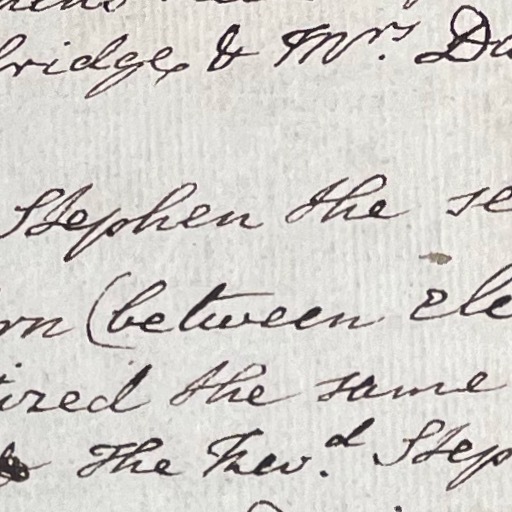 bridge, & Mrs. Da
Stephen the se
rn (between ele
tized the same
The Revd. Step